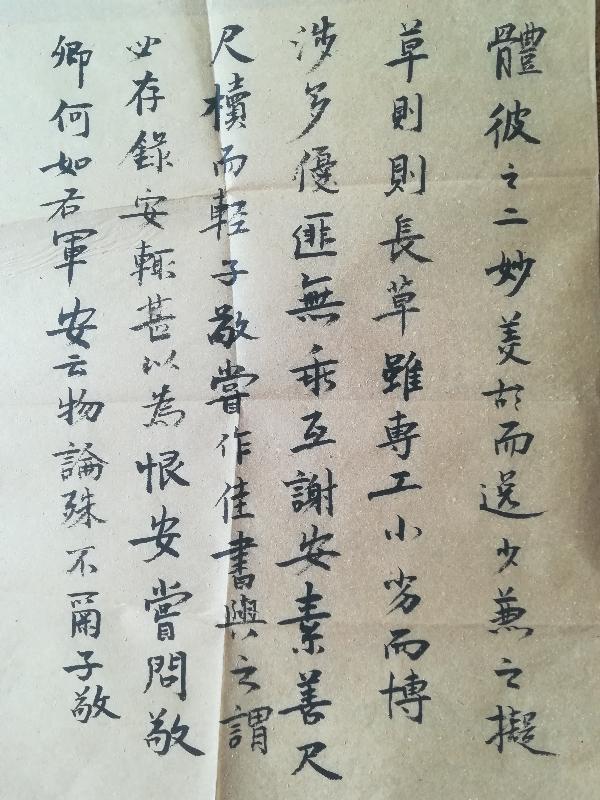 體彼之二妙羡故而逸少兼之擬
草則則長草雖専工小劣而博
涉多優匪無乖互謝安素善尺
尺櫝而輕子敬嘗作佳書與之謂
必存錄安輙甚以為恨安嘗問敬
卿何如右軍安云物論殊不爾子敬